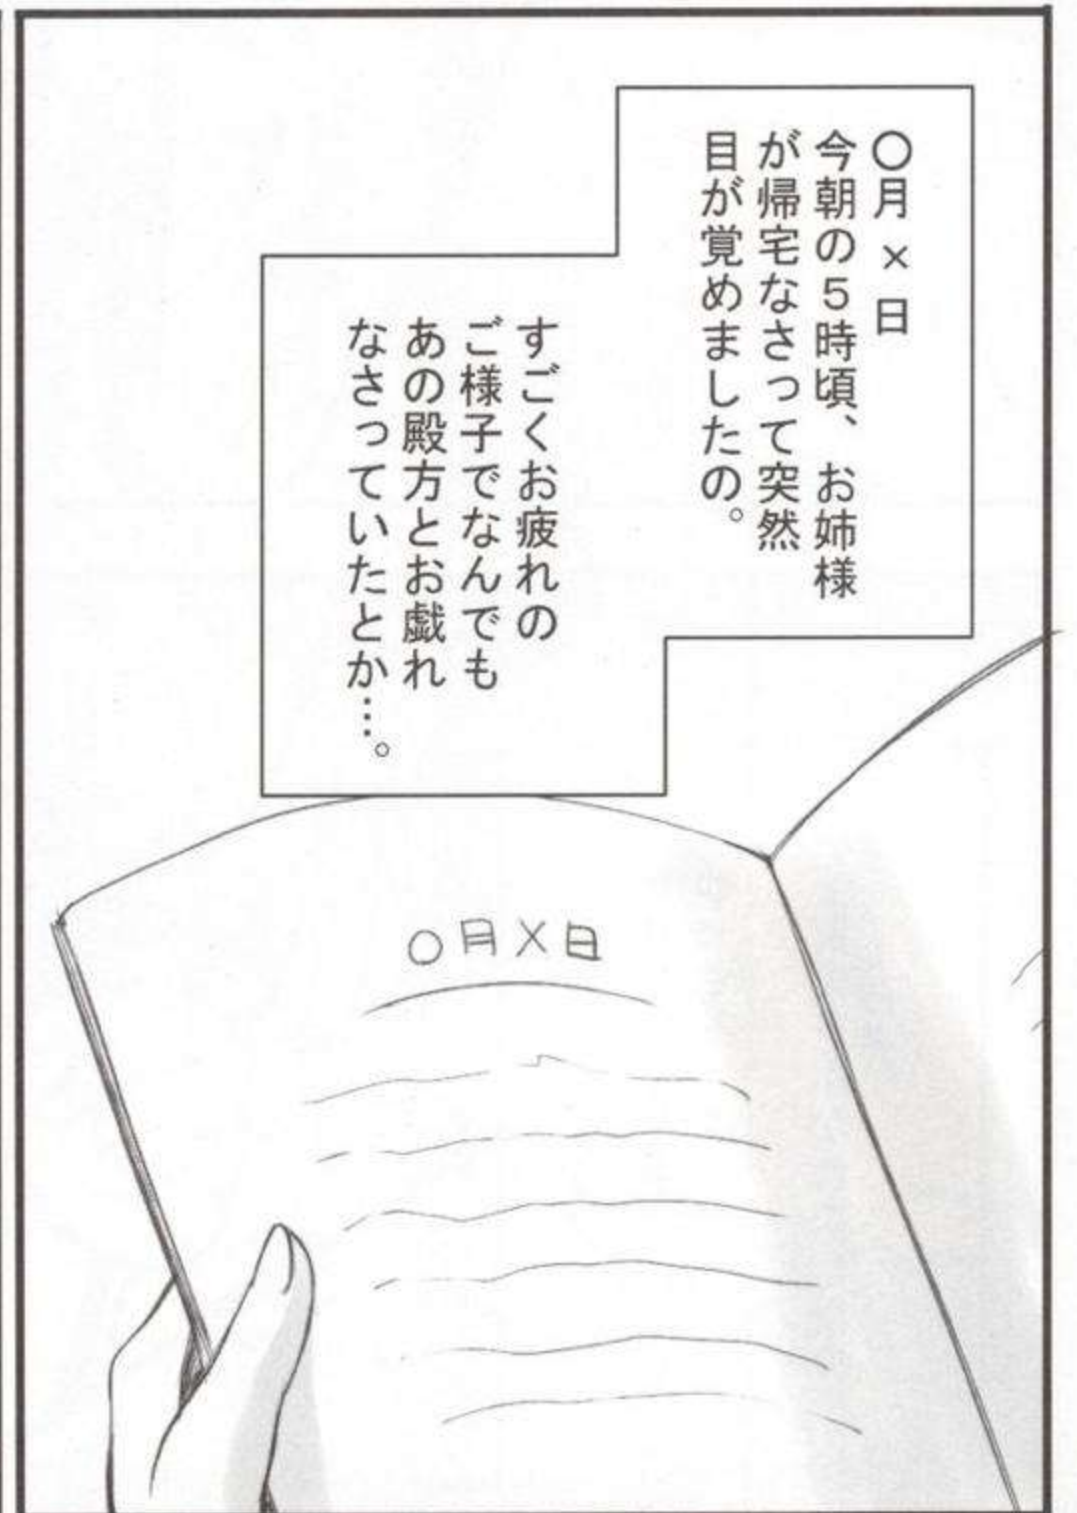 〇月×日
今朝の5時頃、お姉様
が帰宅なさって突然
目が覚めましたの。
すごくお疲れの
ご様子でなんでも
あの殿方とお戯れ
なさっていたとか…。
〇月×日